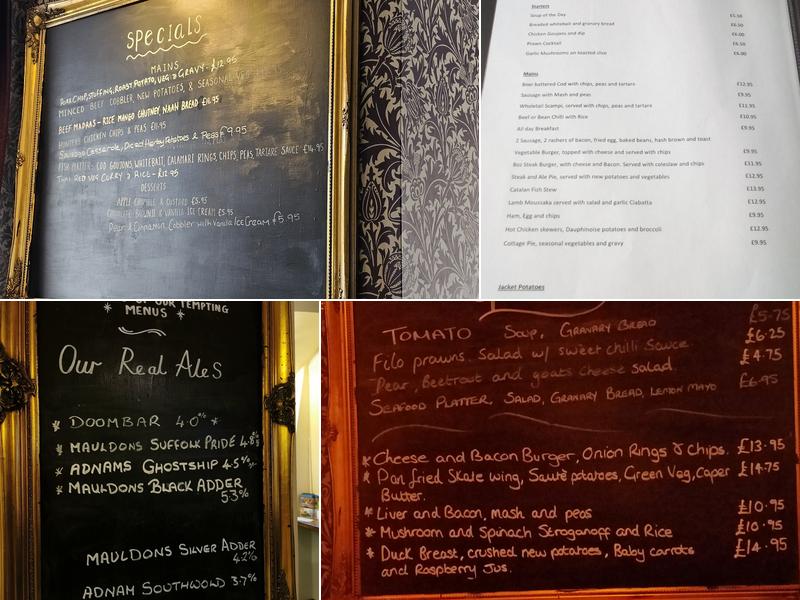 SPECIALS
MAINS
PORK CHOP, STUFFING, ROAST POTATO, VEG & GRAVY - £12.95
MINCED BEEF COBBLER, NEW POTATOES, & SEASONAL VEG
BEEF MADRAS - RICE MANGO CHUTNEY, NAAN BREAD £11.95
HUNTERS CHICKEN CHIPS & PEAS £11.95
Sausage Casserole, Diced Herby Potatoes & Peas £9.95
FISH PLATTER - COD GOUJONS WHITEBAIT, CALAMARI RINGS, CHIPS, PEAS, TARTARE SAUCE £14.95
THAI RED VEG CURRY & RICE - £12.95
DESSERTS
APPLE CRUMBLE & CUSTARD £5.95
CHOCOLATE BROWNIE & VANILLA ICE CREAM £5.95
Pear & Cinnamon Cobbler with Vanilla Ice Cream £5.95
Starters
Soup of the Day £5.50
Breaded whitebait and granary bread £6.50
Chicken Goujons and dip £6.00
Prawn Cocktail £6.50
Garlic Mushrooms on toasted ciso £6.00
Mains
Beer battered Cod with chips, peas and tartare £12.95
Sausage with Mash and peas £9.95
Wholetail Scampi, served with chips, peas and tartare £11.95
Beef or Bean Chilli with Rice £10.95
All day Breakfast £9.95
2 Sausage, 2 rashers of bacon, fried egg, baked beans, hash brown and toast
Vegetable Burger, topped with cheese and served with chips £9.95
8oz Steak Burger, with cheese and Bacon. Served with coleslaw and chips £11.95
Steak and Ale Pie, served with new potatoes and vegetables £12.95
Catalan Fish Stew £13.95
Lamb Moussaka served with salad and garlic Ciabatta £12.95
Ham, Egg and chips £9.95
Hot Chicken skewers, Dauphinoise potatoes and broccoli £12.95
Cottage Pie, seasonal vegetables and gravy £9.95
Jacket Potatoes
OF OUR TEMPTING
* MENUS *
Our Real Ales
* DOOMBAR 4.0% *
* MAULDONS SUFFOLK PRIDE 4.8%
* ADNAMS GHOSTSHIP 4.5%
* MAULDONS BLACK ADDER
5.3%
MAULDONS SILVER ADDER
4.2%
ADNAM SOUTHWOLD 3.7%
£5.75
TOMATO Soup, GRANARY BREAD £6.25
Filo prawns. Salad w/ sweet chilli Sauce £4.75
Pear, Beetroot and goats cheese salad.
SEAFOOD PLATTER, SALAD, GRANARY BREAD, LEMON MAYO £6.95
* Cheese and Bacon Burger, Onion Rings & Chips. £13.95
* Pan fried Skate wing, Sauté potatoes, Green Veg, Caper £14.75
Butter.
* Liver and Bacon, mash and peas £10.95
* Mushroom and Spinach Stroganoff and Rice £10.95
* Duck Breast, crushed new potatoes, Baby carrots £14.95
and Raspberry Jus.